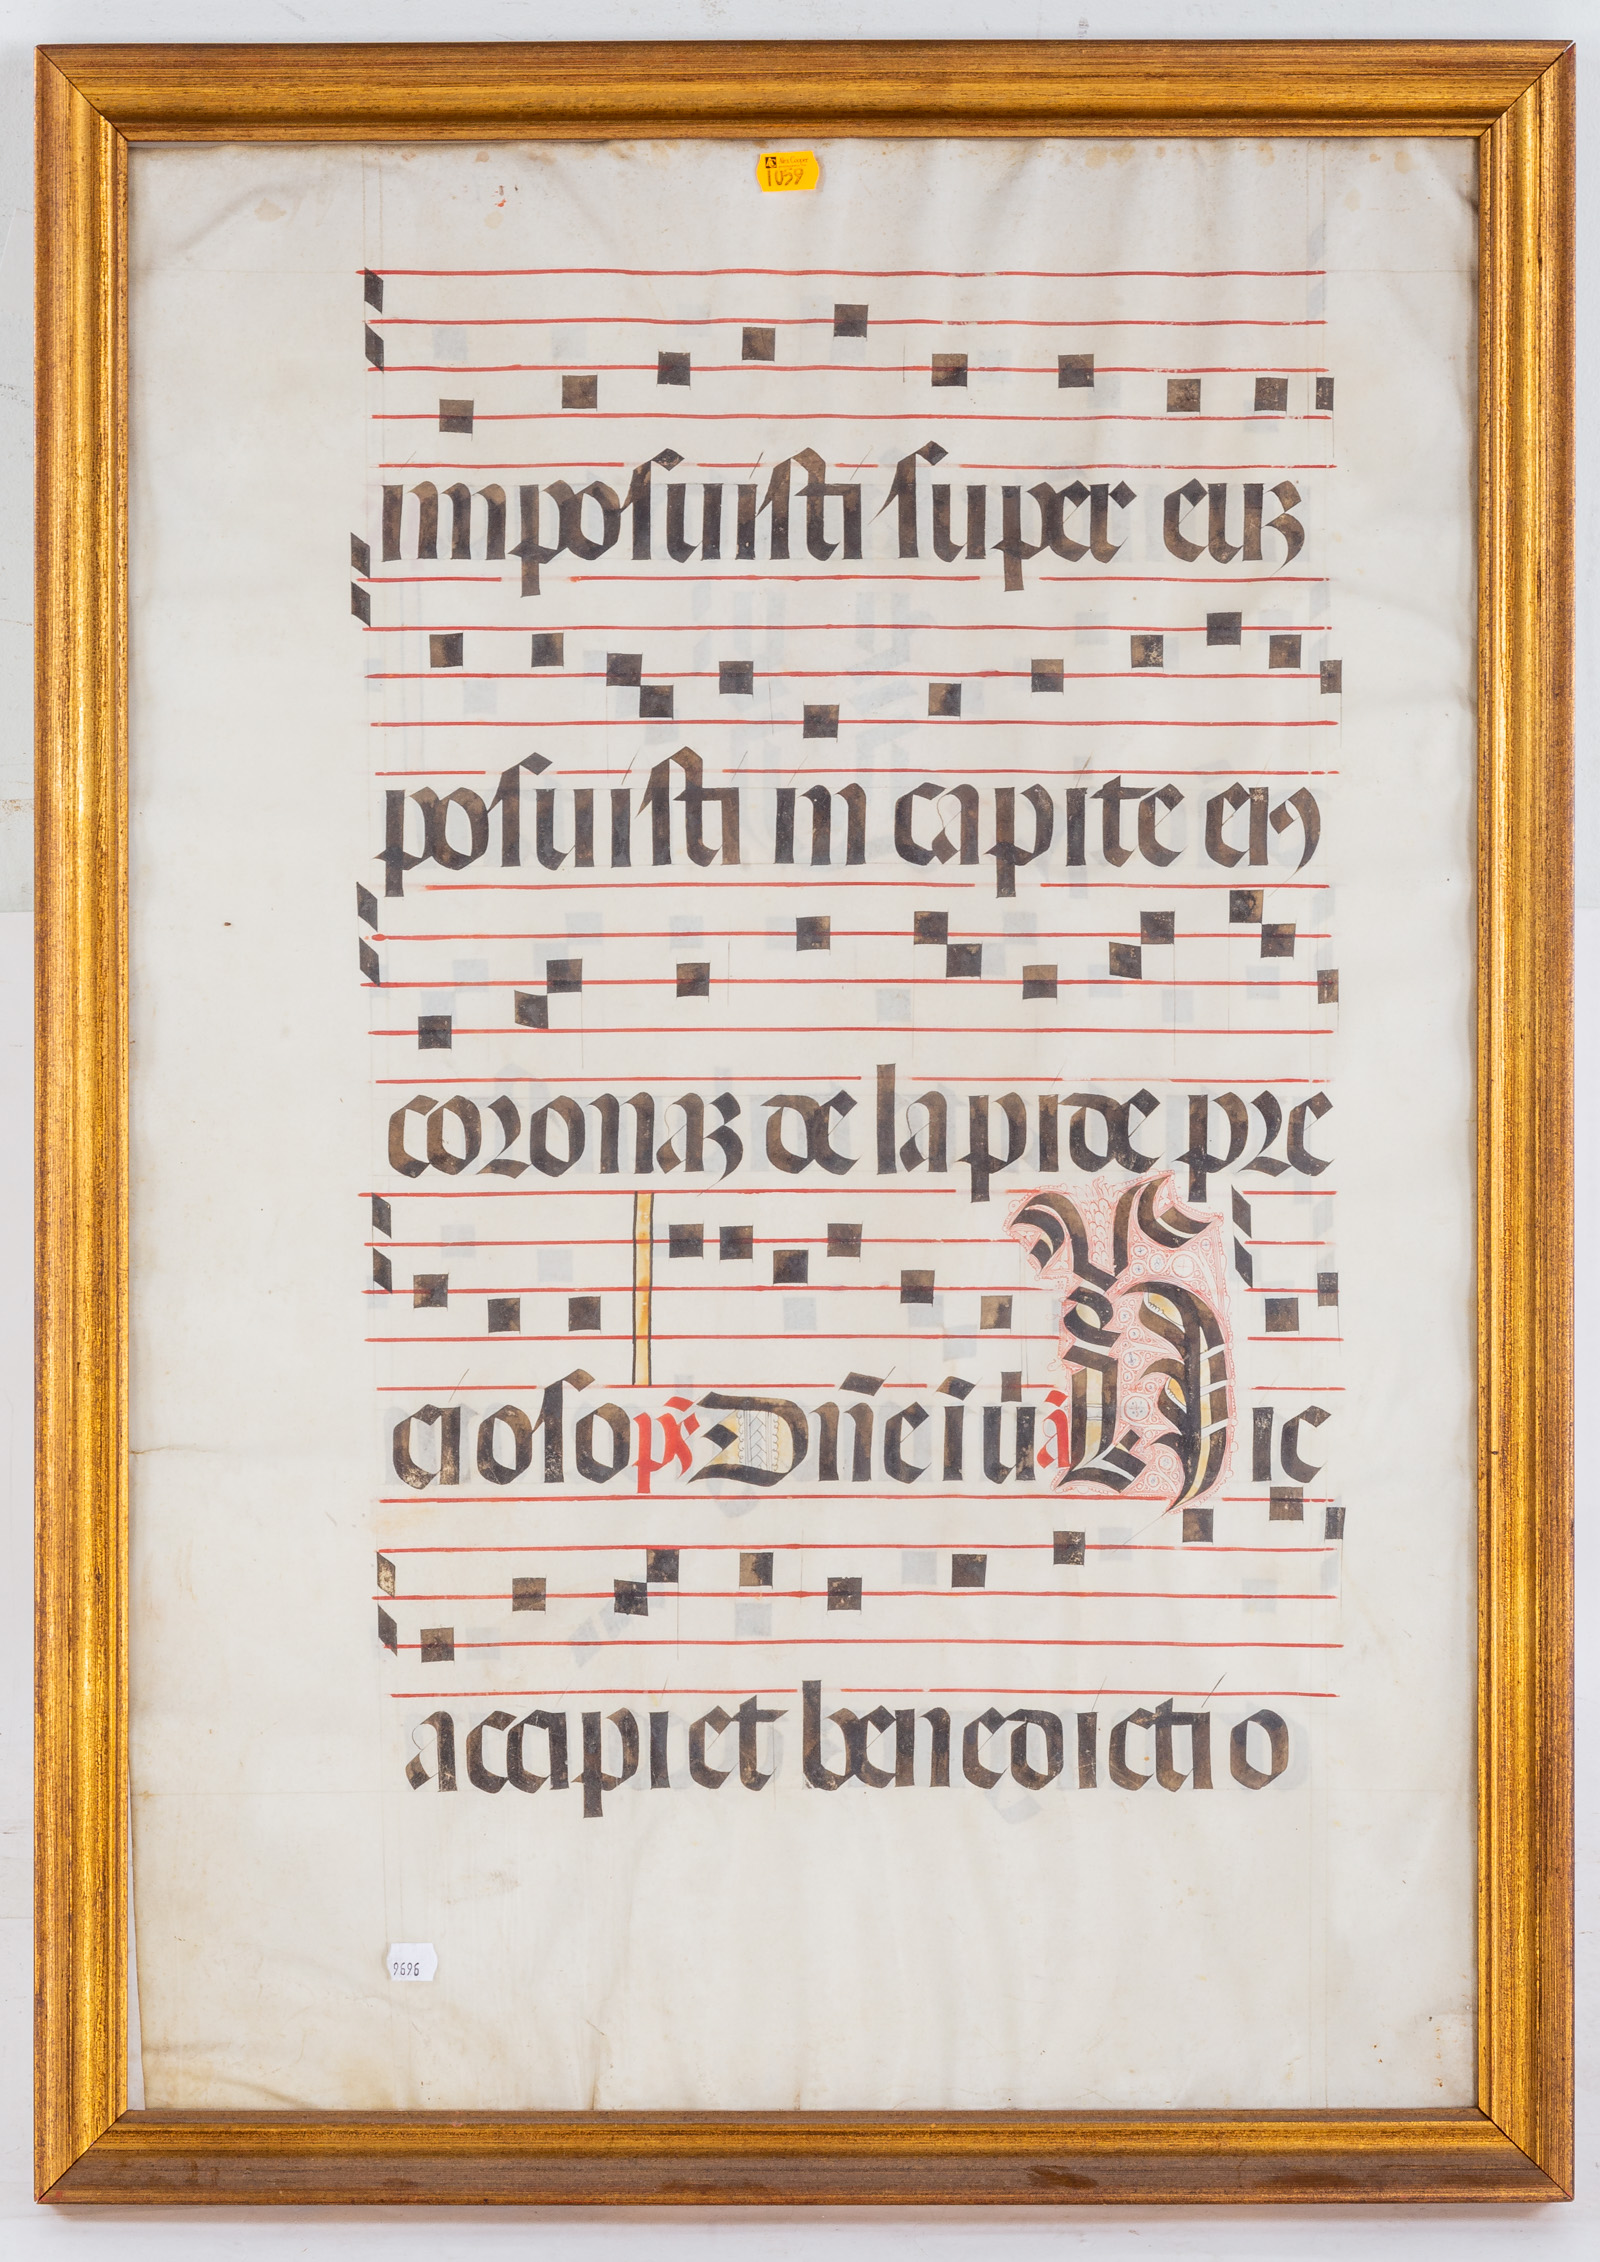 1059
imposuisti super euʒ
posuisti in capite eiꝰ
coronaʒ de lapide pre
cioso ps̄ Dn̄e i ū a Hic
accipiet benedictio
9696